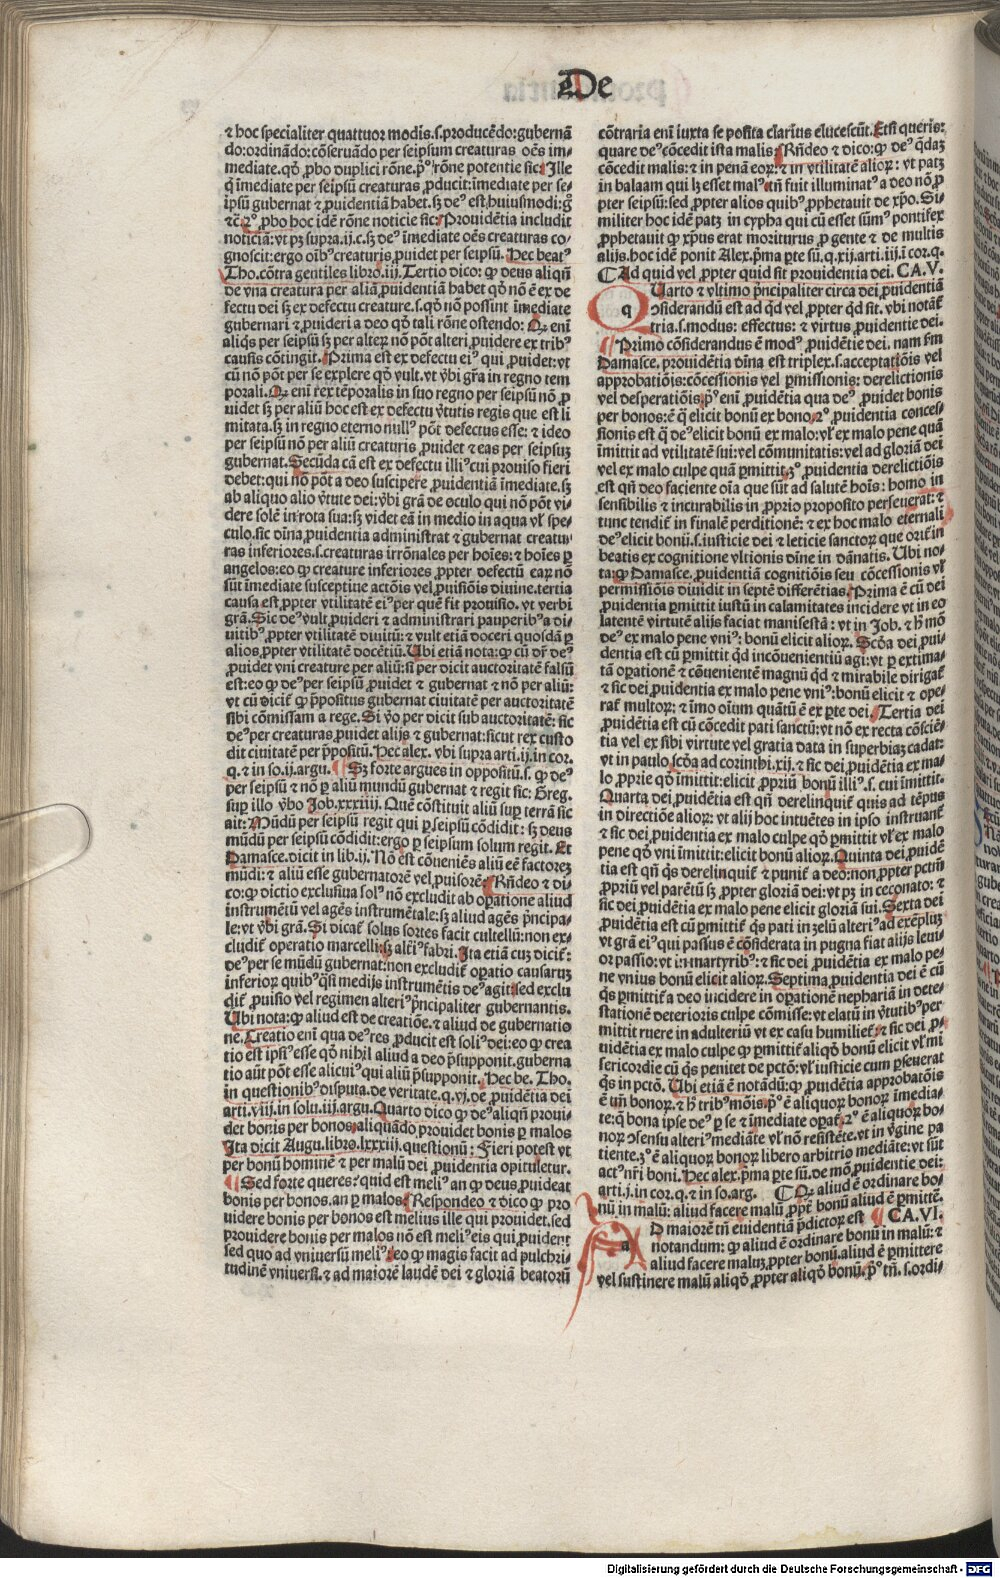 De
⁊ hoc specialiter quattuor modis.s.producēdo:gubernā
do:ordinādo:cōseruādo per seipsum creaturas oēs im-
mediate.qđ ꝓbo duplici rōne.pͦ rōne potentie sic: Ille
q̄ īmediate per seipsū creaturas ꝓducit:īmediate per se-
ipsū gubernat ⁊ ꝓuidentiā habet.sꝫ deꝰ est huiusmodi:gͦ
⁊c̄.2ͦ ꝓbo hoc idē rōne noticie sic: Prouidētia includit
noticiā:vt pꝫ supra.ij.c.sꝫ deꝰ īmediate oēs creaturas co-
gnoscit:ergo oībꝰ creaturis ꝓuidet per seipsū. Hec beatꝰ
Tho.cōtra gentiles libro.iij. Tertio dico: ꝙ deus aliqn̄
de vna creatura per aliā ꝓuidentiā habet qđ nō ē ex de
fectu dei sꝫ ex defectu creature.s.qđ nō possint īmediate
gubernari ⁊ ꝓuideri a deo qđ tali rōne ostendo: Qꝫ enī
aliqͥs per seipsū sꝫ per alterꝝ nō pōt alteri ꝓuidere ex tribꝰ
causis cōtingit. Prima est ex defectu eiꝰ qui ꝓuidet:vt
cū nō pōt per se explere qđ vult.vt v̄bi gr̄a in regno tem
porali. Qꝫ enī rex tēporalis in suo regno per seipsū nō ꝓ
uidet sꝫ per aliū hoc est ex defectu v̄tutis regis que est li
mitata.sꝫ in regno eterno nullꝰ pōt defectus esse: ⁊ ideo
per seipsū nō per aliū creaturis ꝓuidet ⁊ eas per seipsuꝫ
gubernat. Secūda cā est ex defectu illiꝰ cui prouiso fieri
debet:qui nō pōt a deo suscipere ꝓuidentiā īmediate.sꝫ
ab aliquo alio v̄tute dei:v̄bi gr̄a de oculo qui nō pōt vi-
dere solē in rota sua:sꝫ videt eā in medio in aqua vl̄ spe-
culo.sic dīna ꝓuidentia administrat ⁊ gubernat creatu-
ras inferiores.s.creaturas irrōnales per hoīes:⁊ hoīes ꝑ
angelos:eo ꝙ creature inferiores ꝓpter defectū earꝝ nō
sūt īmediate susceptiue actōis vel ꝓuisiōis diuine.tertia
causa est ꝓpter vtilitatē eiꝰ per quē fit prouisio. vt verbi
grā. Sic deꝰ vult ꝓuideri ⁊ administrari pauperibꝰ a di-
uitibꝰ ꝓpter vtilitatē diuitū:⁊ vult etiā doceri quosdā ꝑ
alios ꝓpter vtilitatē docētiū. Ubi etiā nota:ꝙ cū dr̄ deꝰ
ꝓuidet vni creature per aliū:si per dicit auctoritatē falsū
est:eo ꝙ deꝰ per seipsū ꝓuidet ⁊ gubernat ⁊ nō per aliū:
vt cū dicit̄ ꝙ p̄positus gubernat ciuitatē per auctoritatē
sibi cōmissam a rege. Si v̄o per dicit sub auctoritate: sic
deꝰ per creaturas ꝓuidet alijs ⁊ gubernat:sicut rex custo
dit ciuitatē per p̄positū. Hec alex. vbi supra arti.ij.in cor.
q.⁊ in so.ij.argu. Sꝫ forte argues in oppositū.s. ꝙ deꝰ
per seipsū ⁊ nō ꝑ aliū mundū gubernat ⁊ regit sic: Greg.
suꝑ illo v̄bo Job.xxxiiij. Quē cōstituit aliū suꝑ terrā sic
ait: Mūdū per seipsū regit qui ꝑ seipsū cōdidit: sꝫ deus
mūdū per seipsū cōdidit:ergo ꝑ seipsum solum regit. Et
Damasce.dicit in lib.ij. Nō est cōueniēs aliū eē factoreꝫ
mūdi:⁊ aliū esse gubernatorē vel ꝓuisorē. Rn̄deo ⁊ di-
co:ꝙ dictio exclusiua solꝰ nō excludit ab oꝑatione aliud
instrumētū vel agēs instrumētale:sꝫ aliud agēs p̄ncipa-
le:vt v̄bi grā. Si dicat̄ solus sortes facit cultellū:non ex-
cludit̄ operatio marcelli:sꝫ alteriꝰ fabri. Ita etiā cuꝫ dicit̄:
deꝰ per se mūdū gubernat:non excludit̄ oꝑatio causaruꝫ
inferioꝝ quibꝰ qͣsi medijs instrumētis deꝰ agit:sed exclu
dit̄ ꝓuisio vel regimen alteriꝰ p̄ncipaliter gubernantis.
Ubi nota:ꝙ aliud est de creatiōe.⁊ aliud de gubernatio
ne. Creatio enī qua deꝰ res ꝓducit est soliꝰ dei:eo ꝙ crea
tio est ipsiꝰ esse qđ nihil aliud a deo p̄supponit. guberna
tio aūt pōt esse alicuiꝰ qui aliū p̄supponit. Hec be. Tho.
in questionibꝰ disputa.de veritate.q.vj.de ꝓuidētia dei
arti.viij.in solu.iij.argu. Quarto dico ꝙ deꝰ aliqn̄ proui-
det bonis per bonos:aliquādo prouidet bonis ꝑ malos
Ita dicit Augu.libro.lxxxiij.questionū: Fieri potest vt
per bonū hominē ⁊ per malū dei ꝓuidentia opituletur.
Sed forte queres:quid est meliꝰ an ꝙ deus ꝓuideat
bonis per bonos.an ꝑ malos. Respondeo ⁊ dico ꝙ pro
uidere bonis per bonos est melius ille qui prouidet.sed
prouidere bonis per malos nō est meliꝰ eis qui ꝓuident̄
sed quo ad vniuersū meliꝰ:eo ꝙ magis facit ad pulchri-
tudinē vniuersi.⁊ ad maiorē laudē dei ⁊ gloriā beatorū
cōtraria enī iuxta se posita clarius elucescūt. Etsi queris:
quare deꝰ cōcedit ista malis: Rn̄deo ⁊ dico:ꝙ deꝰ qd̄aꝫ
cōcedit malis:⁊ in penā eoꝝ:⁊ in vtilitatē alioꝝ: vt patꝫ
in balaam qui lꝫ esset malꝰ tn̄ fuit illuminatꝰ a deo nō ꝓ
pter seipsū:sed ꝓpter alios quibꝰ ꝓphetauit de xp̄o. Si-
militer hoc idē patꝫ in cypha qui cū esset sūmꝰ pontifex
ꝓphetauit ꝙ xp̄us erat moriturus ꝓ gente ⁊ de multis
alijs.hoc idē ponit Alex.p̄ma ꝑte sū.q.xij.arti.iiij.ī cor.q.
Ad quid vel ꝓpter quid sit prouidentia dei. CA.V.
Quarto ⁊ vltimo p̄ncipaliter circa dei ꝓuidentiā
ꝯsiderandū est ad qd̄ vel ꝓpter qd̄ sit. vbi notat̄
tria.s.modus: effectus: ⁊ virtus ꝓuidentie dei.
Primo cōsiderandus ē modꝰ ꝓuidētie dei. nam fm
Damasce. prouidētia dīna est triplex.s.acceptatiōis vel
approbatiōis:cōcessionis vel ꝑmissionis: derelictionis
vel desperatiōis.pͦ enī ꝓuidētia qua deꝰ ꝓuidet bonis
per bonos:ē q̄ elicit bonū ex bono.2ͦ ꝓuidentia conces-
sionis est q̄ deꝰ elicit bonū ex malo:vl̄ ex malo pene quā
īmittit ad vtilitatē sui:vel cōmunitatis:vel ad gloriā dei
vel ex malo culpe quā ꝑmittit.3ͦ ꝓuidentia derelictiōis
est qn̄ deo faciente oīa que sūt ad salutē hoīs: homo in
sensibilis ⁊ incurabilis in ꝓprio proposito perseuerat:⁊
tunc tendit̄ in finalē perditionē: ⁊ ex hoc malo eternali
deꝰ elicit bonū.s.iusticie dei ⁊ leticie sanctoꝝ que orit̄ in
beatis ex cognitione vltionis dīne in dānatis. Ubi no-
ta:ꝙ Damasce.ꝓuidentiā cognitiōis seu cōcessionis vl̄
permissiōis diuidit in septē differētias. Prima ē cū dei
ꝓuidentia ꝑmittit iustū in calamitates incidere vt in eo
latentē virtutē alijs faciat manifestā: vt in Job. ⁊ h̄ mō
deꝰ ex malo pene vniꝰ: bonū elicit alioꝝ. Scđa dei ꝓui-
dentia est cū ꝑmittit qd̄ incōuenientiū agi:vt ꝑ extima-
tā oꝑationē ⁊ cōuenientē magnū qd̄ ⁊ mirabile dirigat̄
⁊ sic dei ꝓuidentia ex malo pene vniꝰ:bonū elicit ⁊ ope-
rat̄ multoꝝ: ⁊ īmo oīum quātū ē ex ꝑte dei. Tertia dei
ꝓuidētia est cū cōcedit pati sanctū:vt nō ex recta cōsciē-
tia vel ex sibi virtute vel gratia data in superbiaꝫ cadat:
vt in paulo scđa ad corinthi.xij.⁊ sic dei ꝓuidētia ex ma-
lo ꝓprie qđ īmittit:elicit ꝓpriū bonū illiꝰ.s. cui īmittit.
Quarta dei ꝓuidētia est qn̄ derelinquit̄ quis ad tēpus
in directiōē alioꝝ: vt alij hoc intuētes in ipso instruant̄
⁊ sic dei ꝓuidentia ex malo culpe qđ ꝑmittit vl̄ ex malo
pene qđ vni īmittit:elicit bonū alioꝝ. Quinta dei ꝓuidē
tia est qn̄ qͥs derelinquit̄ ⁊ punit̄ a deo:non ꝓpter pctm̄
ꝓpriū vel parētū sꝫ ꝓpter gloriā dei:vt pꝫ in ceconato: ⁊
sic dei ꝓuidētia ex malo pene elicit gloriā sui. Sexta dei
ꝓuidētia est cū ꝑmittit̄ qͥs pati in zelū alteriꝰ ad exēplū:
vt grā eiꝰ qui passus ē cōsiderata in pugna fiat alijs leui-
or passio:vt in martyribꝰ:⁊ sic dei ꝓuidētia ex malo pe-
ne vnius bonū elicit alioꝝ. Septima ꝓuidentia dei ē cū
qͥs ꝑmittit̄ a deo incidere in oꝑationē nephariā in dete-
stationē deterioris culpe cōmisse:vt elatū in v̄tutibꝰ per
mittit ruere in adulteriū vt ex casu humiliet̄:⁊ sic dei ꝓ-
uidētia ex malo culpe ꝙ ꝑmittit̄ aliqđ bonū elicit vl̄ mi
sericordie cū qͥs penitet de pctō:vl̄ iusticie cum ꝑseuerat
qͥs in pctō. Ubi etiā ē notādū:ꝙ ꝓuidētia approbatōis
ē vn̄ bonoꝝ.⁊ h̄ tribꝰ mōis.pͦ ē aliquoꝝ bonoꝝ īmedia-
te:q̄ bona ipse deꝰ ꝑ se ⁊ īmediate oꝑat̄.2ͦ ē aliquoꝝ bo-
noꝝ ꝯsensu alteriꝰ mediāte vl̄ nō resistēte.vt in v̄gine pa
tiente.3ͦ ē aliquoꝝ bonoꝝ libero arbitrio mediāte:vt sūt
actꝰ nr̄i boni. Hec alex.p̄ma ꝑte sū.de mō ꝓuidentie dei:
arti.j.in cor.q.⁊ in so.arg. Qꝫ aliud ē ordinare bo-
nū in malū: aliud facere malū ꝓpt̄ bonū aliud ē ꝑmittē.
Ad maiorē tn̄ euidentiā p̄dictoꝝ est CA.VI.
notandum: ꝙ aliud ē ordinare bonū in malū:⁊
aliud facere maluꝫ ꝓpter bonū.aliud ē ꝑmittere
vel sustinere malū aliqđ ꝓpter aliqđ bonū.pͦ tn̄.s.ordi-
Digitalisierung gefördert durch die Deutsche Forschungsgemeinschaft - DFG